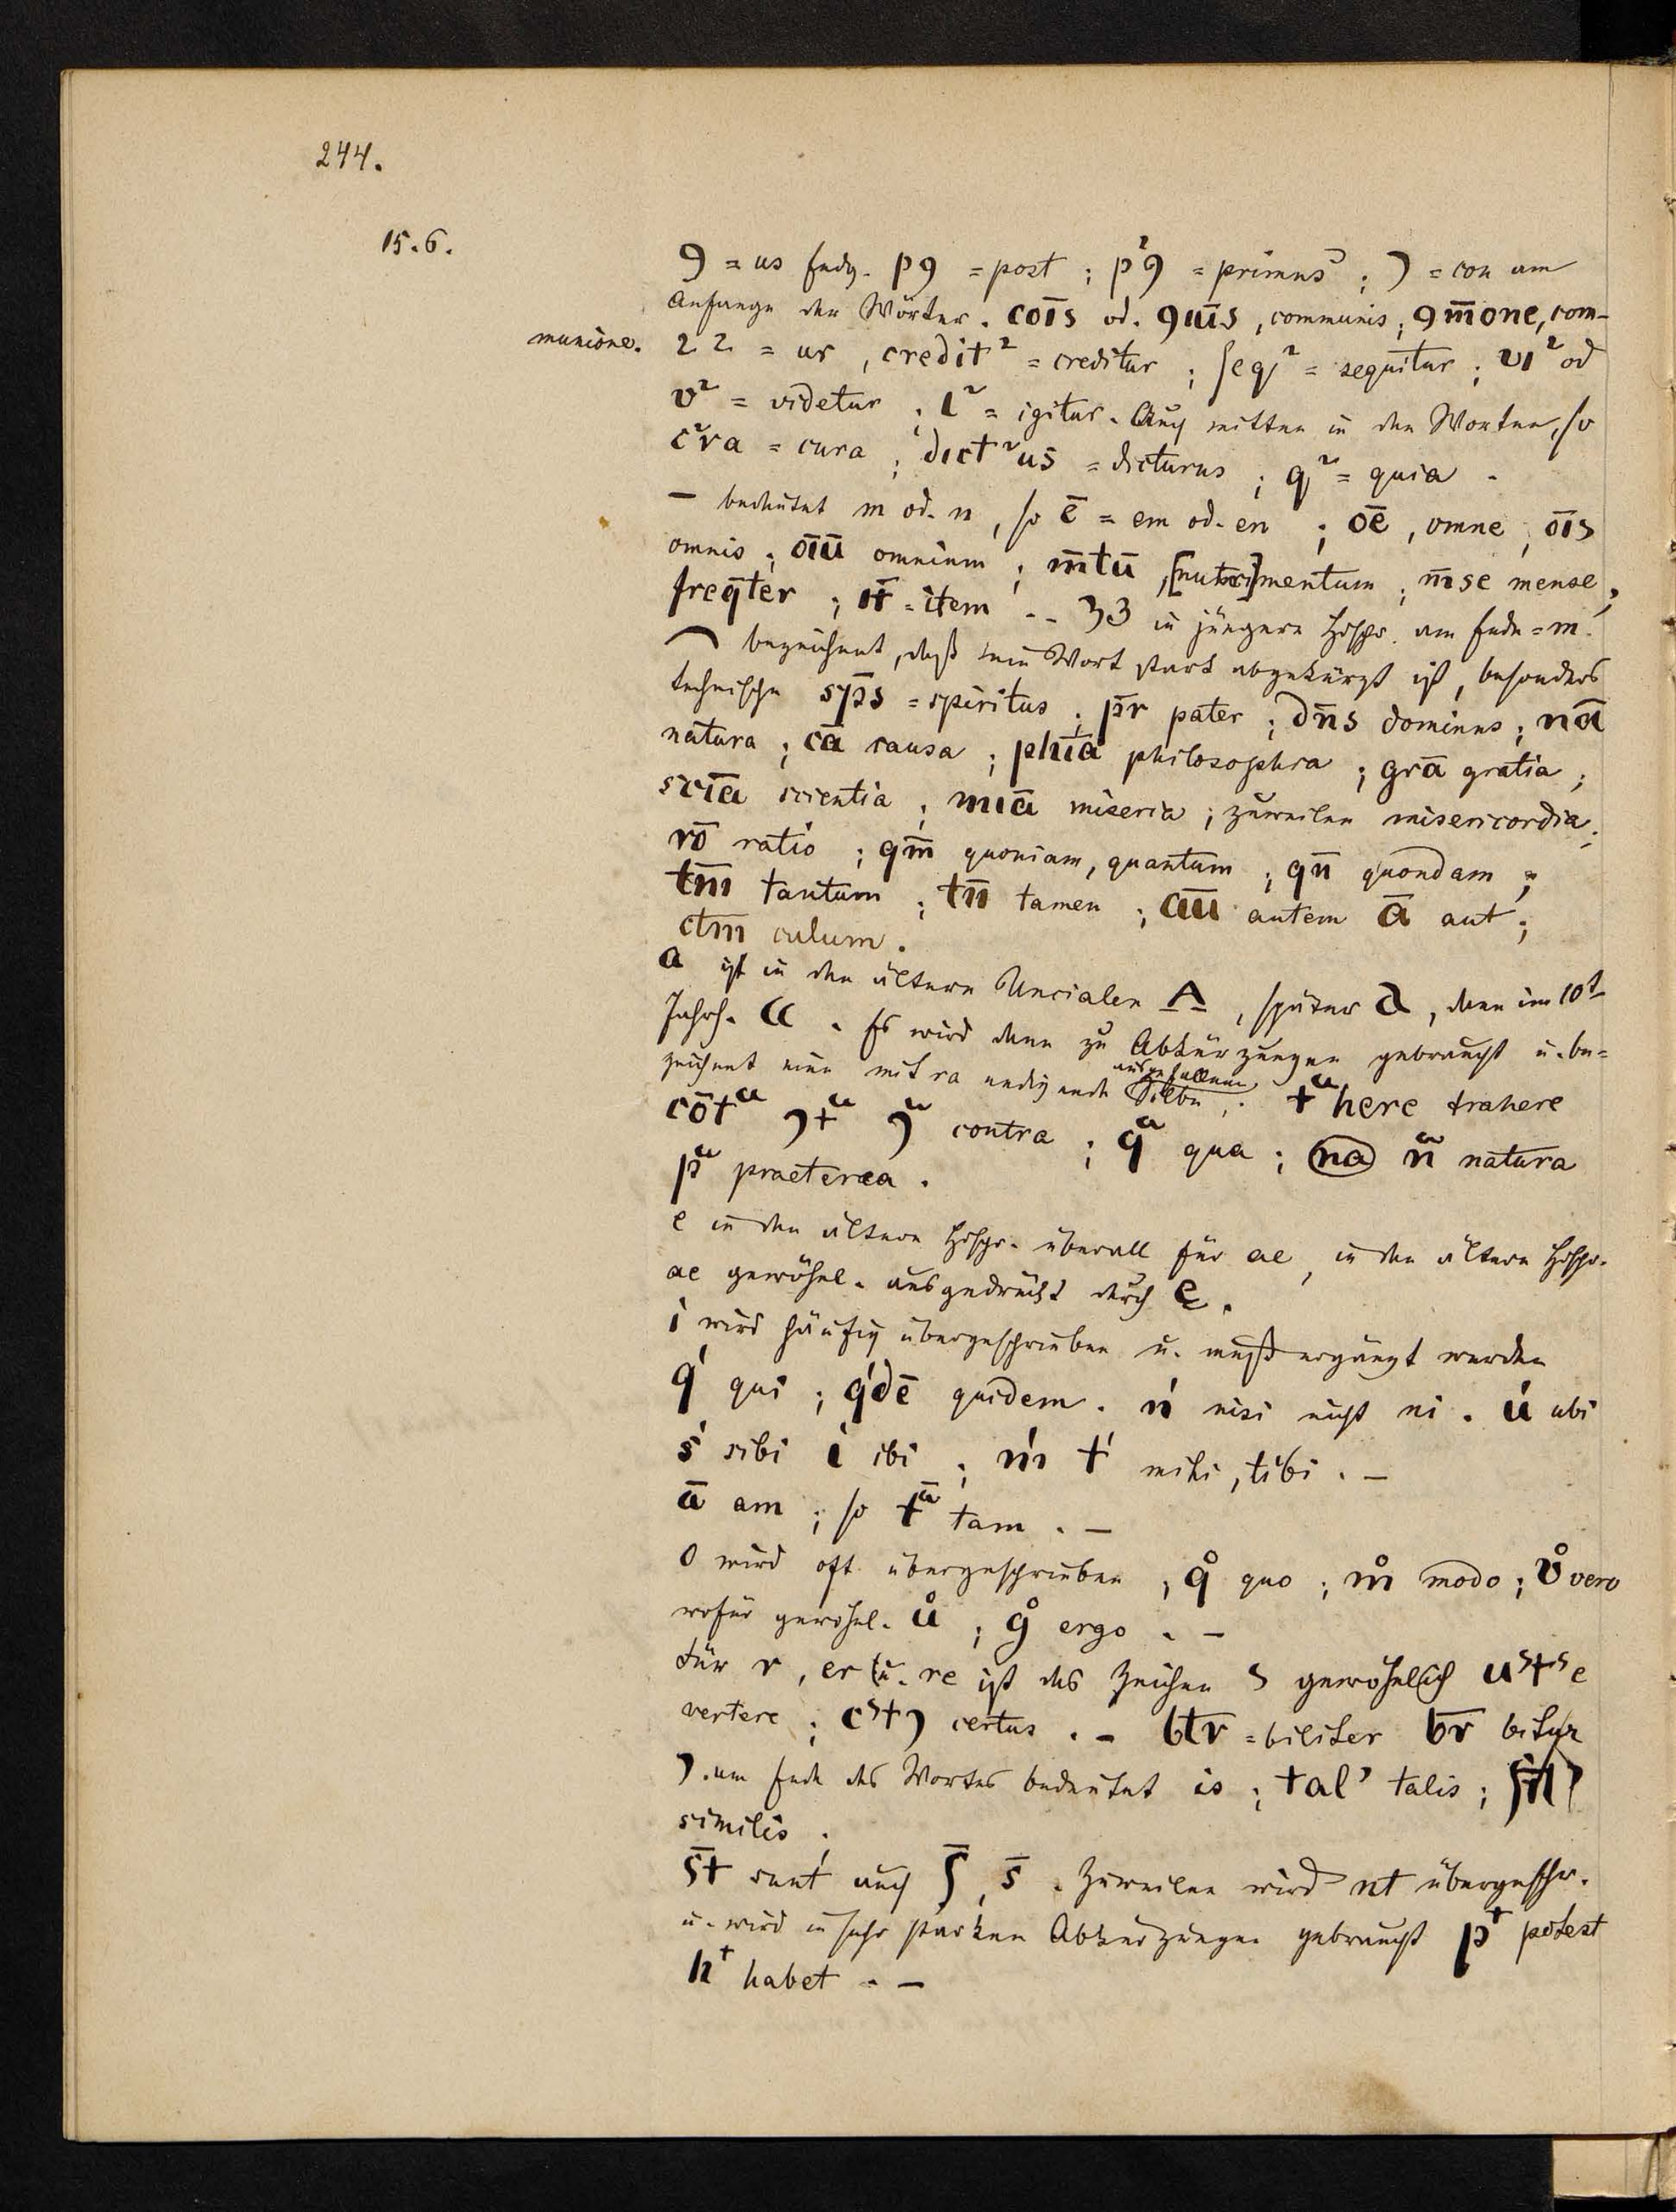 244.
15.6.
9 = us Endg. p9 = post ; p²9 = primus ; ) = con am
Anfange der Wörter. cōīs od. 9ūīs, communis ; 9m̄one, com-
munione. 2 2 = ur, credit² = creditur ; ſeqͥ² = sequitur ; vi² od
v² = videtur ; i² = igitur. Auch mitten in den Worten, so
c²ra = cura ; dict²us = dicturus ; q² = quia .
— bedeutet m od. n, so ē = em od. en ; ōē, omne ; ōīs
omnis ; ōīū omnium ; m̄tū, [nutri]mentum ; m̄se mense,
freq̄ter ; it̄ = item -- 33 in jüngern Hdschr. am Ende = m.
⁀ bezeichnet, daß sein Wort stark abgekürzt ist, besonders
technische sp̄s = spiritus ; pr̄ pater ; dn̄s dominus ; nā
natura ; cā causa ; phīā philosophia ; grā gratia ;
scīā scientia ; mīā miseria ; zuweilen misericordia ;
rō ratio ; qm̄ quoniam, quantum ; qn̄ quondam ;
tm̄ tantum ; tn̄ tamen ; aū autem ā aut ;
ctm culum .
a ist in den ältern Uncialen A, später a, dann im 10t
Jahrh. a . Es wird dann zu Abkürzungen gebraucht u. be-
zeichnet eine mit ra endigende ausgefallene Silbe ; tᵃhere trahere
cōtᵃ )tᵃ )ᵃ contra ; qᵃ qua ; na nᵃ natura
pᵃ praeterea .
e in den ältern Hdschr. überall für ae, in den ältern Hdschr.
ae gewöhnl. ausgedrückt durch ę .
i wird häufig übergeschrieben u. muß ergänzt werden
qⁱ qui ; qⁱdē quidem . nⁱ nisi nicht ni . uⁱ ubi
sⁱ sibi iⁱ ibi ; mⁱ tⁱ mihi, tibi . —
ā am ; so tᵃ̄ tam . —
o wird oft übergeschrieben ; qᵒ quo ; mᵒ modo ; vᵒ vero
wofür gewöhnl. uᵒ ; gᵒ ergo . —
Für r, er u. re ist das Zeichen s gewöhnlich uˢtˢe
vertere ; cˢt) certus . — btr = biliter br̄ bitur
). am Ende des Wortes bedeutet is ; tal’ talis ; ſil̄’
similis ;
s̄t sunt auch ſ̄, s̄ . Zuweilen wird nt übergeschr.
u. wird in sehr starken Abkürzungen gebraucht pᵗ potest
hᵗ habet . —